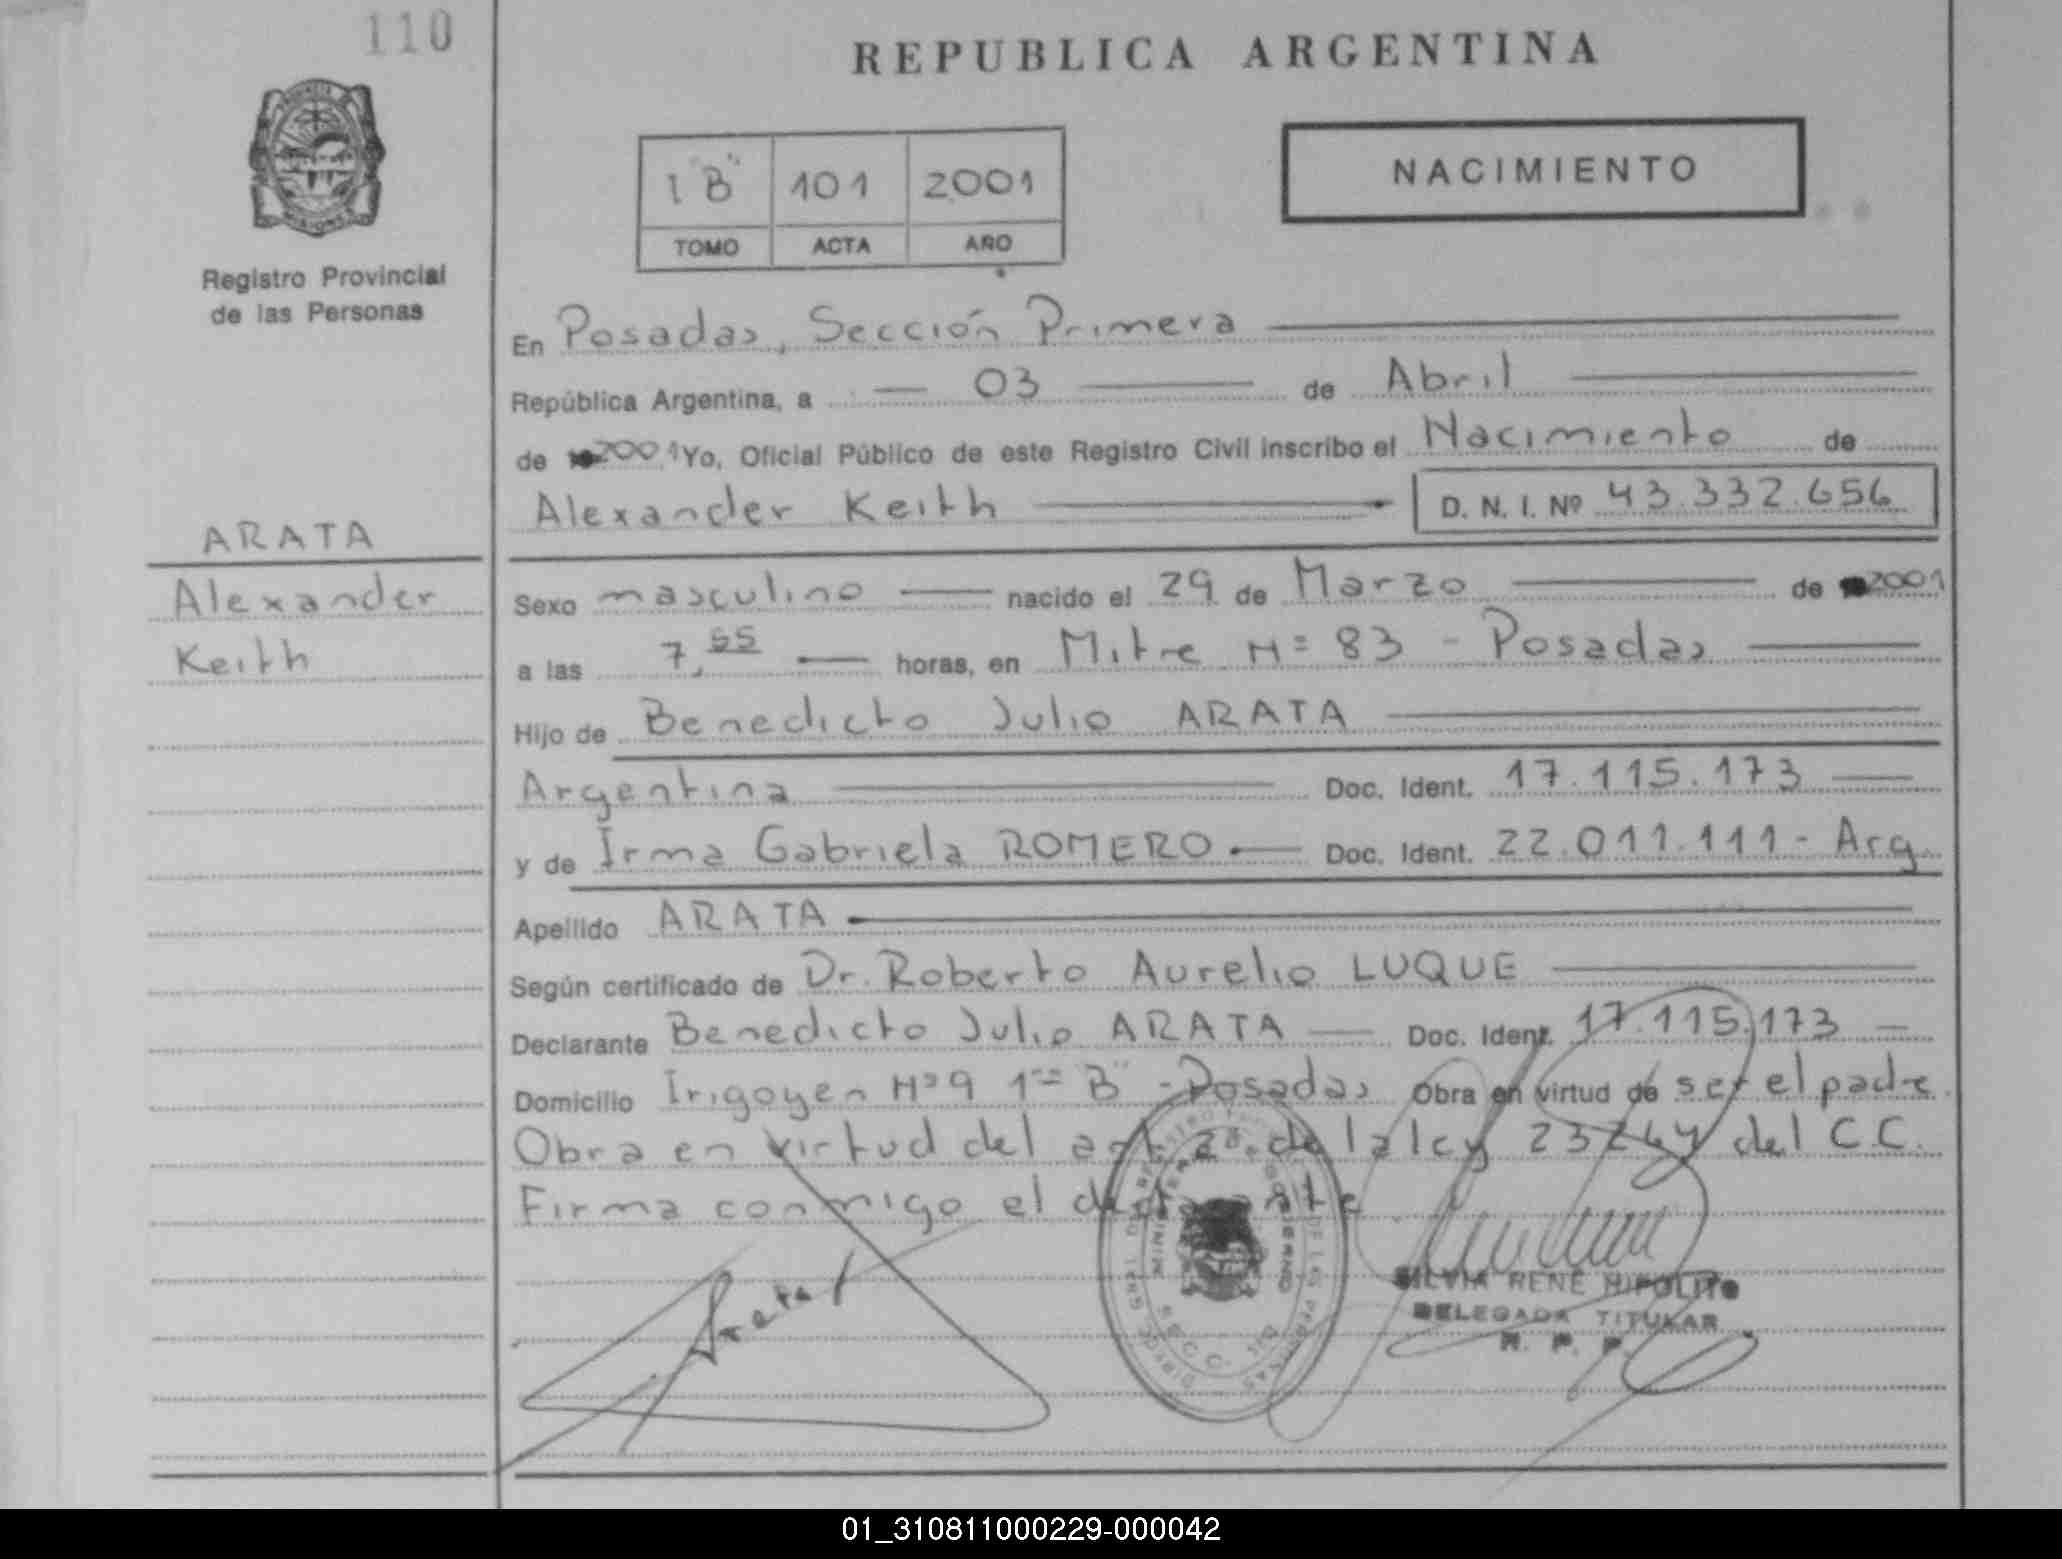 110
REPUBLICA ARGENTINA
1 "B" 101 2001
TOMO ACTA AÑO
NACIMIENTO
Registro Provincial
de las Personas
En Posadas, Sección Primera
República Argentina, a 03 de Abril
de 2001 Yo, Oficial Público de este Registro Civil inscribo el Nacimiento de
Alexander Keith D. N. I. Nº 43.332.656
ARATA
Alexander
Keith
Sexo masculino nacido el 29 de Marzo de 2001
a las 7,55 horas, en Mitre Nº 83 - Posadas
Hijo de Benedicto Julio ARATA
Argentina Doc. Ident. 17.115.173
y de Irma Gabriela ROMERO Doc. Ident. 22.011.111 - Arg
Apellido ARATA
Según certificado de Dr. Roberto Aurelio LUQUE
Declarante Benedicto Julio ARATA Doc. Ident. 17.115.173
Domicilio Irigoyen Nº 9 1º "B" - Posadas Obra en virtud de ser el padre.
Obra en virtud del art. 2º de la ley 23264 del C.C.
Firma conmigo el declarante.
Arata
SILVIA RENÉ HIPOLITO
DELEGADA TITULAR
R. P. P.
01_310811000229-000042